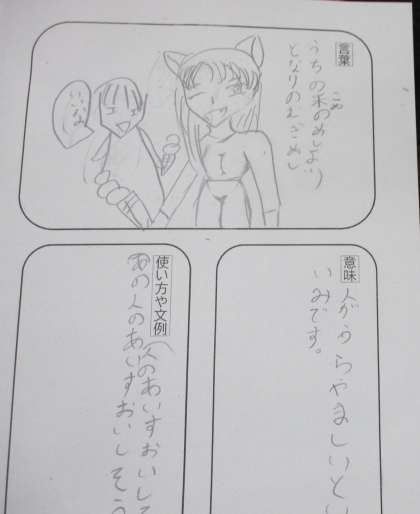 言葉
うちの米のめしより
となりのむぎめし
いいな
意味
人がうらやましいとい
いみです。
使い方や文例
人のあいすおいして
あの人のあいすおいしそう